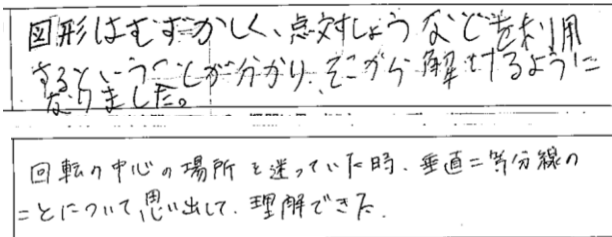 図形はむずかしく、点対しょうなどを利用
するということが分かり、そこから解けるように
なりました。
回転の中心の場所を迷っていた時、垂直二等分線の
ことについて思い出して、理解できた.